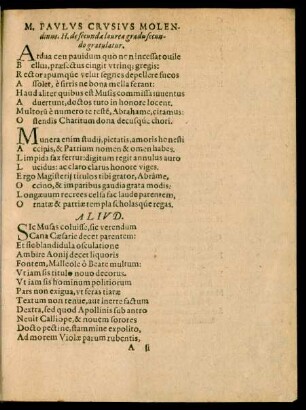 M. PAVLVS CRVSIVS MOLEN-
dinus. H. de secunda laurea gradu secun-
do gratulator.
Ardua ceu pauidum quo ne incessat ouile
Bellus, præfectus cingit vtrinq; gregis;
Rector apumque velut segnes depellere fucos
Assolet, è stiris ne bona mella ferant:
Haud aliter quibus est Musis commissa iuuentus
Aduertunt, doctos tuto in honore locent.
Multorũ è numero te restè, Abrahame, citamus:
Ostendis Charitum dona decusq; chori.
Munera enim studij, pietatis, amoris honesti
Accipis, & Patrium nomen & omen habes.
Limpida fax ferrũ: digitum regit annulus auro
Lucidus: ac claro clarus honore viget.
Ergo Magisterij titulos tibi grator, Abrãme,
Ocino, & imparibus gaudia grata modis:
Longæuum recrees celsa fac laude parentem,
Ornatè & patriæ templa scholasque regas.
ALIVD.
SIc Musas coluisse, sic verendum
Scana Cæsarie decet parentem:
Et sic blandidula osculatione
Ambire Aonij decet liquoris
Fontem, Malleole ô Beate multum:
Vt iam sis titulo nouo decorus.
Vt iam sis hominum politiorum
Pars non exigua, vt feras tiaræ
Textum non tenue, aut inerte factum
Dextra, sed quod Apollinis sub antro
Neuit Calliope, & nouem sorores
Docto pectine, stammine expolito,
Ad morem Violæ parum rubentis,
A ij